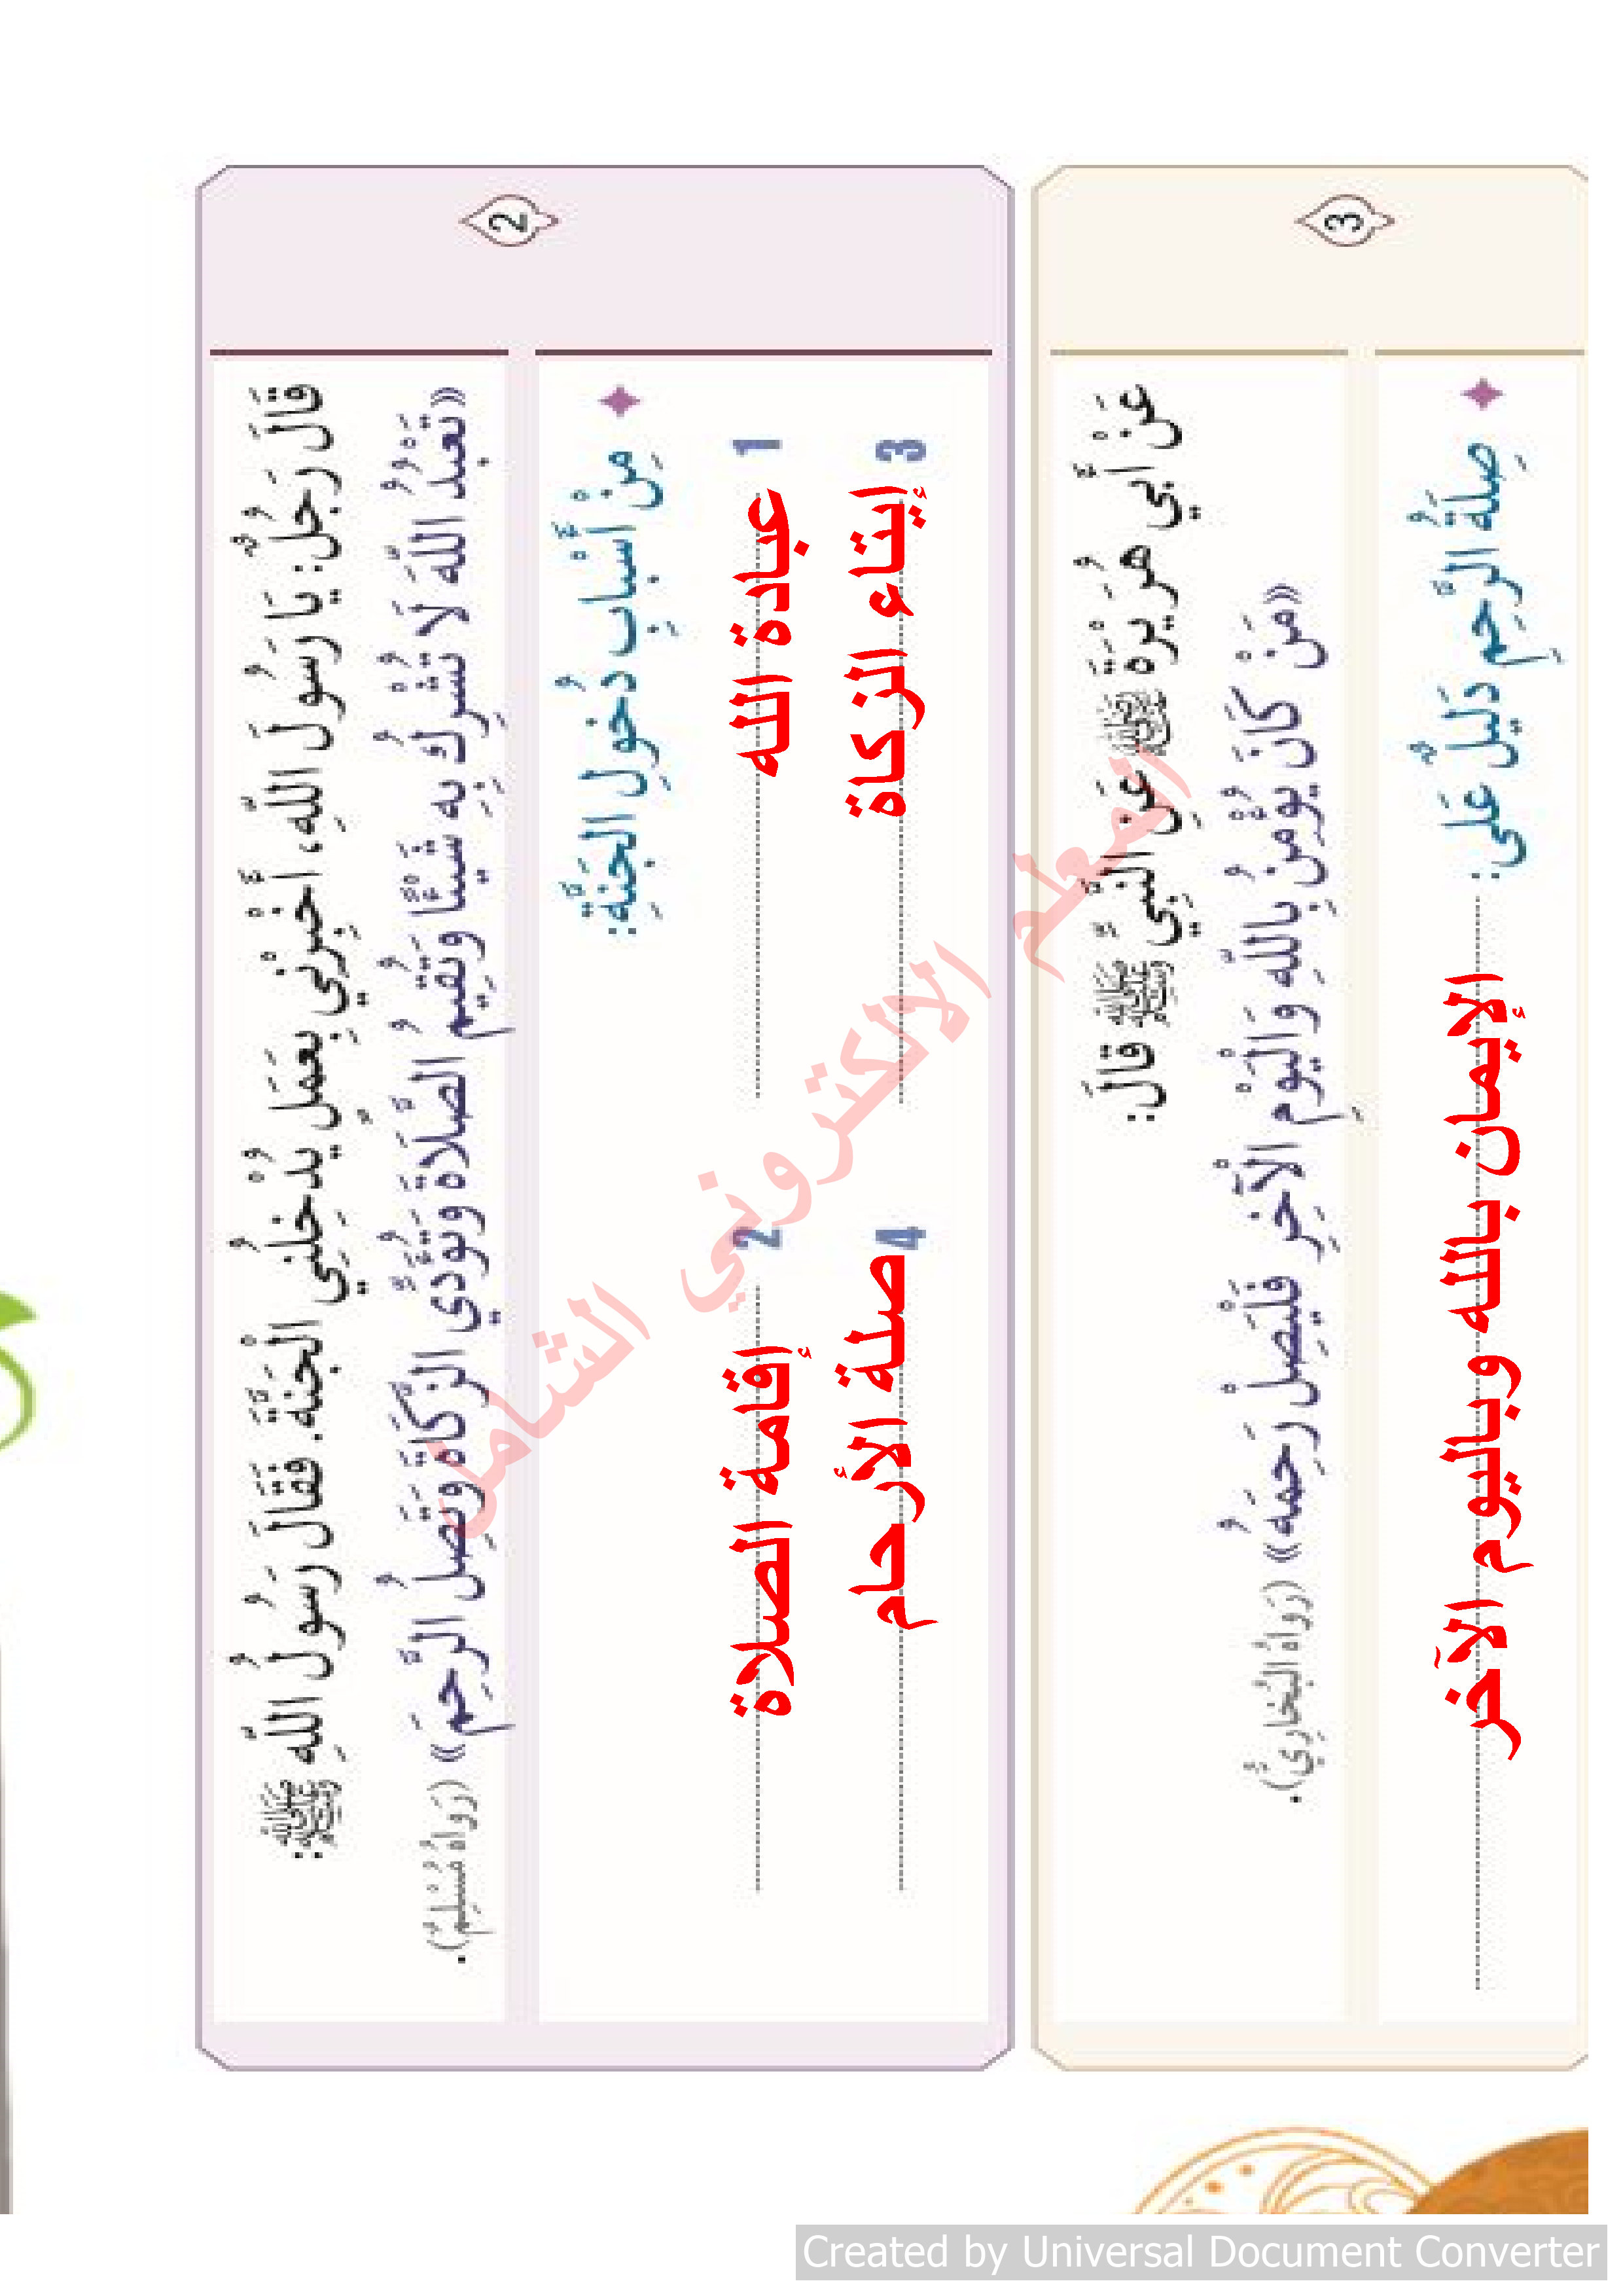 2
قَالَ رَجُلٌ: يَا رَسُولَ اللَّهِ، أَخْبِرْنِي بِعَمَلٍ يُدْخِلُنِي الْجَنَّةَ. فَقَالَ رَسُولُ اللَّهِ ﷺ:
«تَعْبُدُ اللَّهَ لَا تُشْرِكُ بِهِ شَيْئًا وَتُقِيمُ الصَّلَاةَ وَتُؤَدِّي الزَّكَاةَ وَتَصِلُ الرَّحِمَ» (رَوَاهُ مُسْلِمٌ).
مِنْ أَسْبَابِ دُخُولِ الجَنَّةِ:
1 عبادة الله 2 إقامة الصلاة
3 إيتاء الزكاة 4 صلة الأرحام
3
عَنْ أَبِي هُرَيْرَةَ رضي الله عنه عَنِ النَّبِيِّ ﷺ قَالَ:
«مَنْ كَانَ يُؤْمِنُ بِاللَّهِ وَالْيَوْمِ الْآخِرِ فَلْيَصِلْ رَحِمَهُ» (رَوَاهُ الْبُخَارِيُّ).
صِلَةُ الرَّحِمِ دَلِيلٌ عَلَى: الإيمان بالله وباليوم الآخر
المعلم الالكتروني الشامل
Created by Universal Document Converter